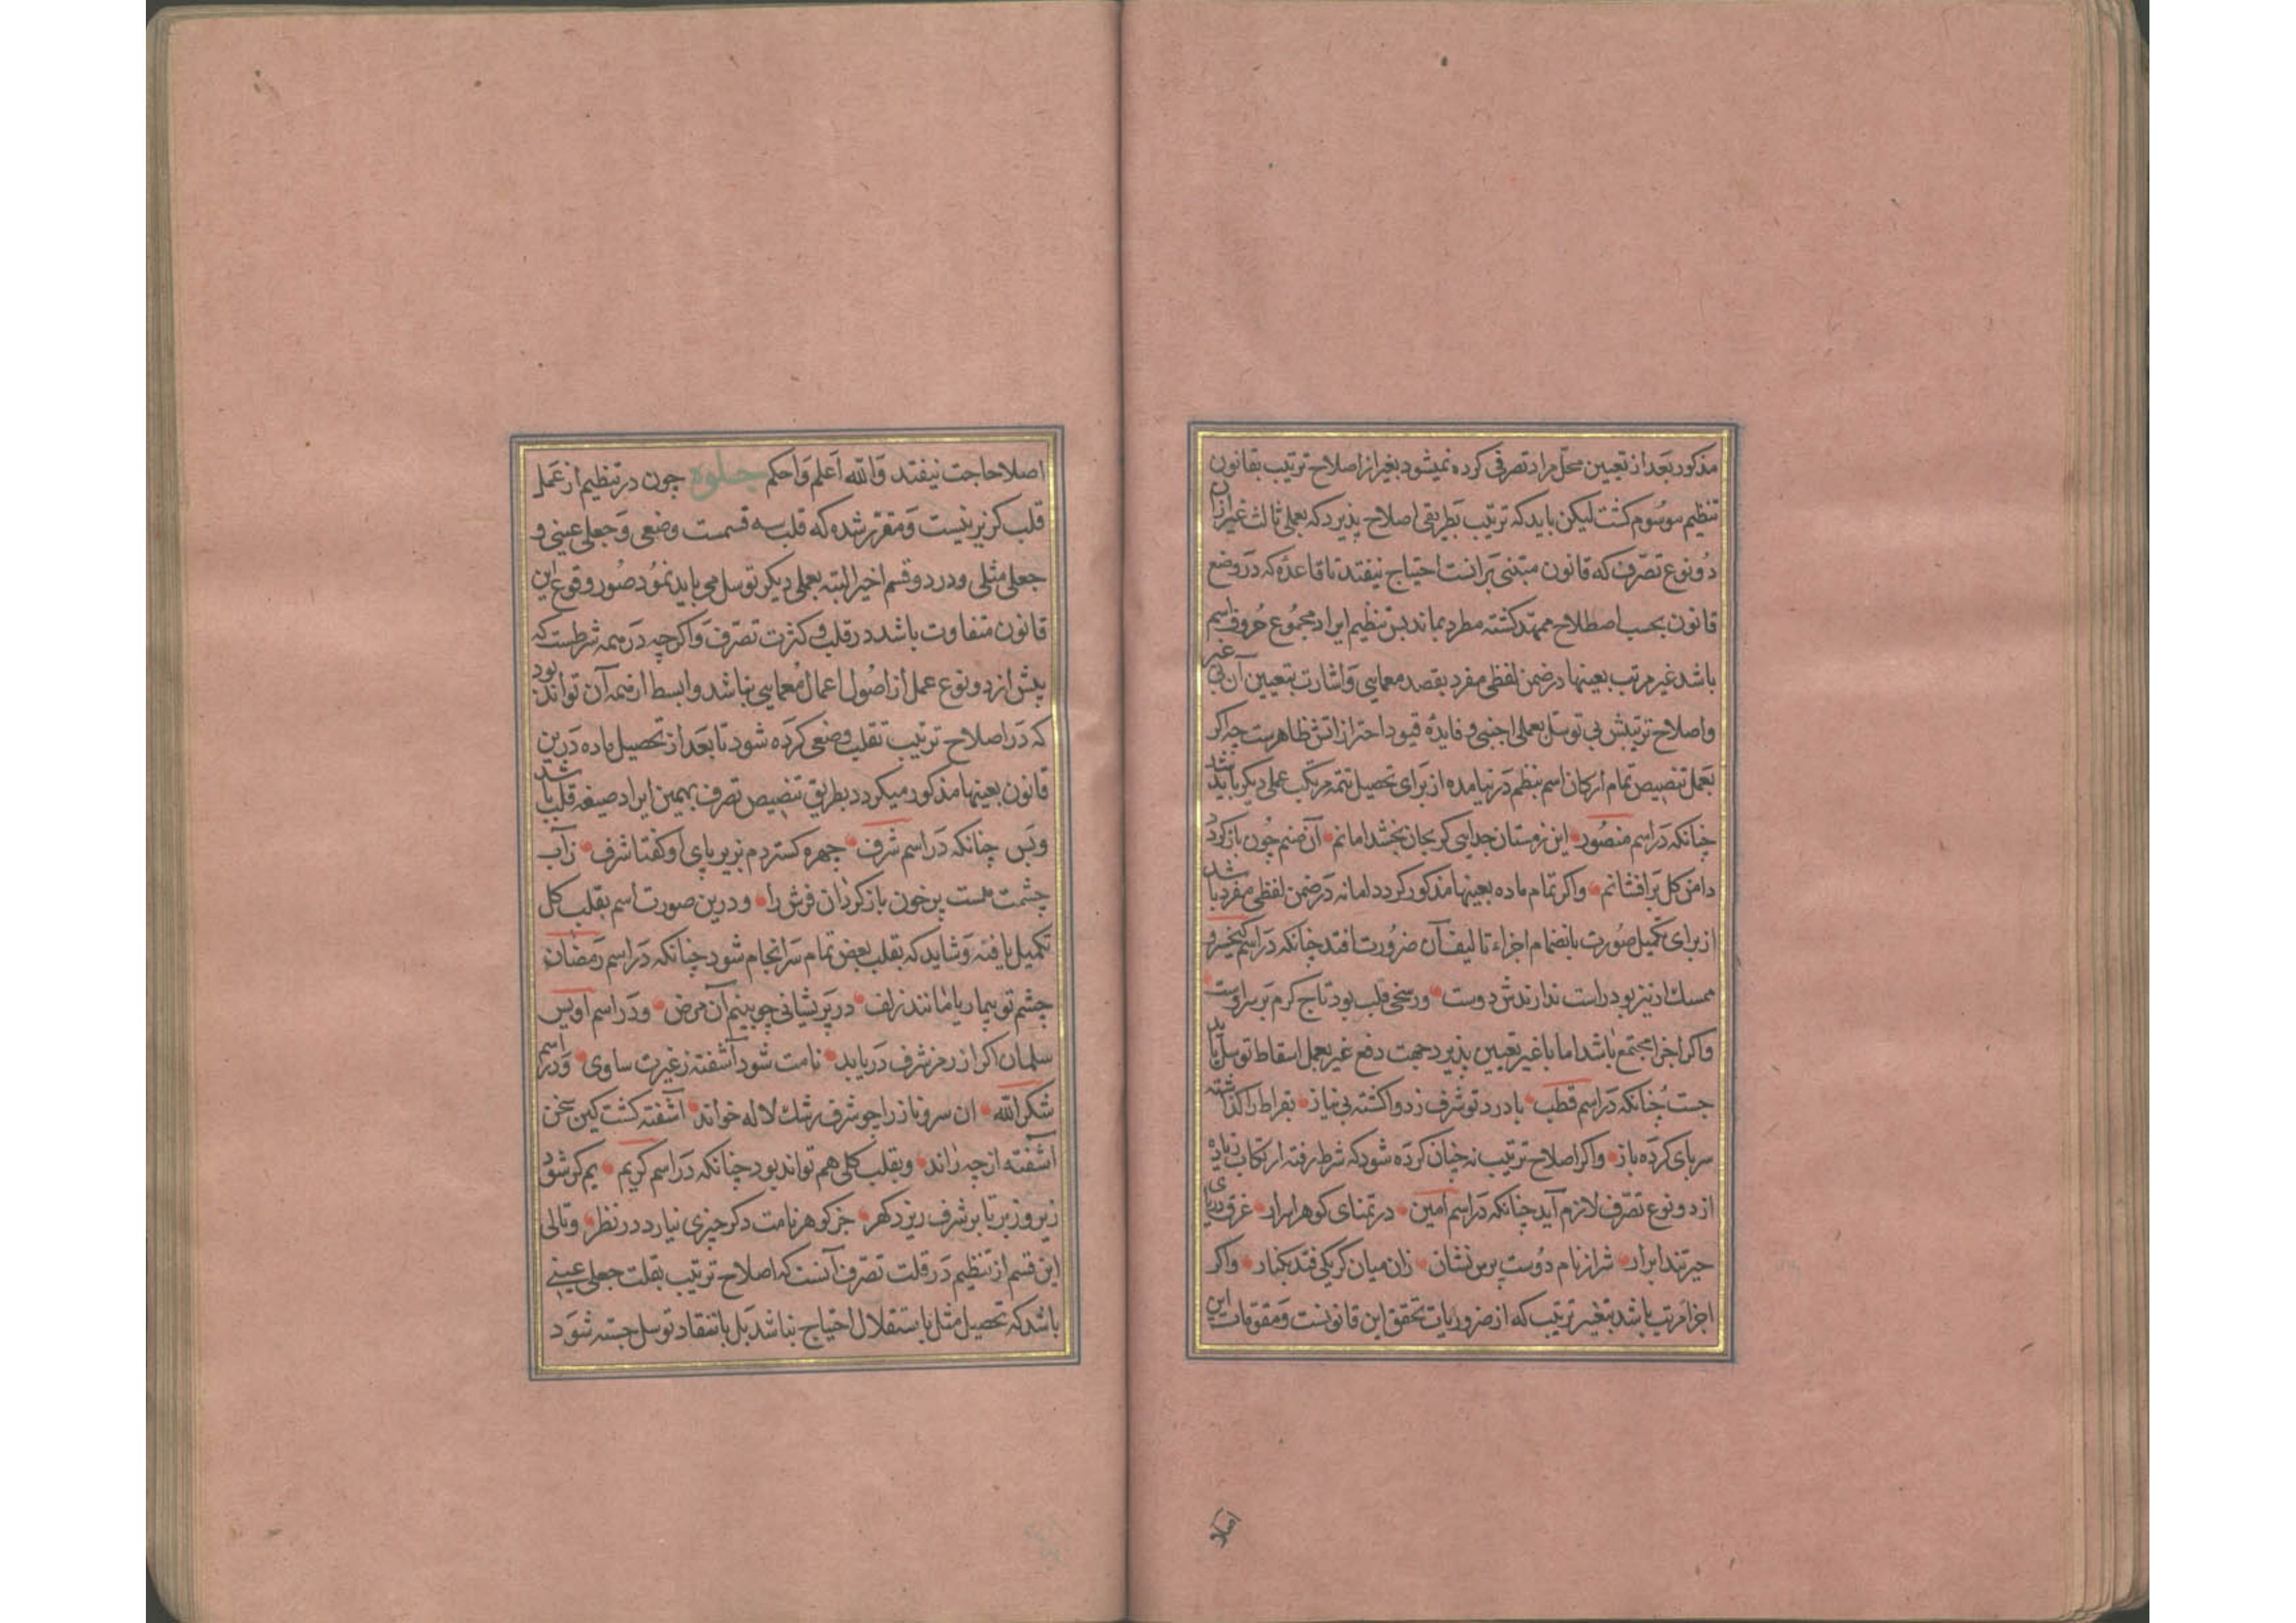 مذکور بعد از تعیین محلّ مراد تصرفی کرده نمیشود بغیر از اصلاح ترتیب بقانون
تنظیم موسُوم کشت لیکن باید که ترتیب بطریقی اصلاح پذیرد که بعملی ثالث غیر ازان
دُونوع تصّرف که قانون مبتنی برانست احتیاج نیفتد تا قاعدهٔ که در وضع
قانون بحسب اصطلاح ممهّد کشته مطرد بماند پس تنظیم ایراد مجمُوع حُروف اسم
باشد غیر مرتب بعینها در ضمن لفظی مفرد بقصد معمایی وَاشارت بتعیین آن بی غیر
واصلاح ترتیبش بی توسّل بعملی اجنبی و فایدهٔ قیود احترازاتش ظاهرست چه اکر
بعمل تنصیص تمام ارکان اسم بنظم در نیامده از برای تحصیل تتمه مرتکب عملی دیکر باید شد
چنانکه در اسم منصُور این زمستان جدایی کر بجان بخشد امانم آن صنم چُون باز کردد
دامن کل بر افشانم واکر تمام ماده بعینها مذکور کردد اما نه در ضمن لفظی مفرد باشد
از برای تکمیل صُورت بانضمام اجزاء تالیف آن ضرُورت افتد چنانکه در اسم کیخسرو
ممسك ار نیز بود راست ندارندش دوست ور سخی قلب بود تاج کرم بر سر اوست
واکر اجزا مجتمع باشد اما با غیر تعیین پذیرد جهت دفع غیر بعمل اسقاط توسل باید
جست چُنانکه در اسم قطب با درد تو شرف ز دوا کشته بی نیاز بقراط را کذاشته
سر پای کرده باز واکر اصلاح ترتیب نه چنان کرده شود که شرط رفته ارتکاب زیاده
از دو نوع تصّرف لازم آید چنانکه در اسم امین در تمنای کوهر ابرار غرق دریای
حیرتند ابرار شد از نام دُوست پرس نشان زان میان کر یکی فتد بکنار واکر
اجزا مرتب باشد بتغیر ترتیب که از ضروریات تحقق این قانونست وَمقومات این
اصلا
اصلا حاجت نیفتد وَاللّه اَعلم وَاحکم جلوه چون در تنظیم از عمل
قلب کزیر نیست وَمقرر شده که قلب سه قسمست وضعی وَجعلی عینی و
جعلی مثلی و در دو قسم اخیر البته بعملی دیکر توسل می باید نمُود صُور وقوع این
قانون متفاوت باشد در قلت و کثرت تصّرف وَاکرچه در همه شرطست که
بیش از دو نوع عمل از اصُول اعمال مُعمایی نباشد وابسط از همه آن تواند بود
که در اصلاح ترتیب تقلب وضعی کرده شود تا بعد از تحصیل ماده درین
قانون بعینها مذکور میکردد بطریق تنصیص تصرف بهمین ایراد صیغه قلب باشد
وبَس چنانکه در اسم شرف چهره کستردم بزیر پای او کفتا شرف زآب
چشمت هست پر خون باز کردان فرش را و درین صورت اسم بقلب کل
تکمیل یافته وَشاید که بقلب بعض تمام سرانجام شود چنانکه در اسم رمضان
چشم تو بیمار یا مانند زلف در پریشانی چو بینم آن مرض ودر اسم اویس
سلمان اکر از رمز شرف دریابد نامت شود آشفته ز غیرت ساوی وَدر اسم
شکر اللّه ان سرو ناز را چو شرف رشك لاله خواند آشفته کشت کین سخن
آشفته از چه راند وبقلب کلی هم تواند بود چنانکه در اسم کریم یم کر شود
زیر و زبر تا بر شرف ریزد کهر جز کوهر نامت دکر چیزی نیارد در نظر وتالی
این قسم از تنظیم در قلت تصّرف آنست که اصلاح ترتیب بقلب جعلی عینی
باشد که تحصیل مثل باستقلال احتیاج نباشد بل بانتقاد توسل جسته شود